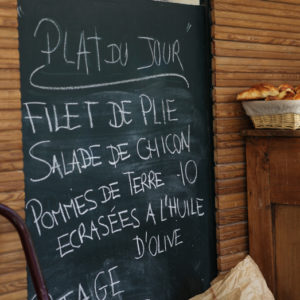 PLAT DU JOUR"
FILET DE PLIE
SALADE DE CHICON
POMMES DE TERRE 10
ECRASÉES A L'HUILE
D'OLIVE